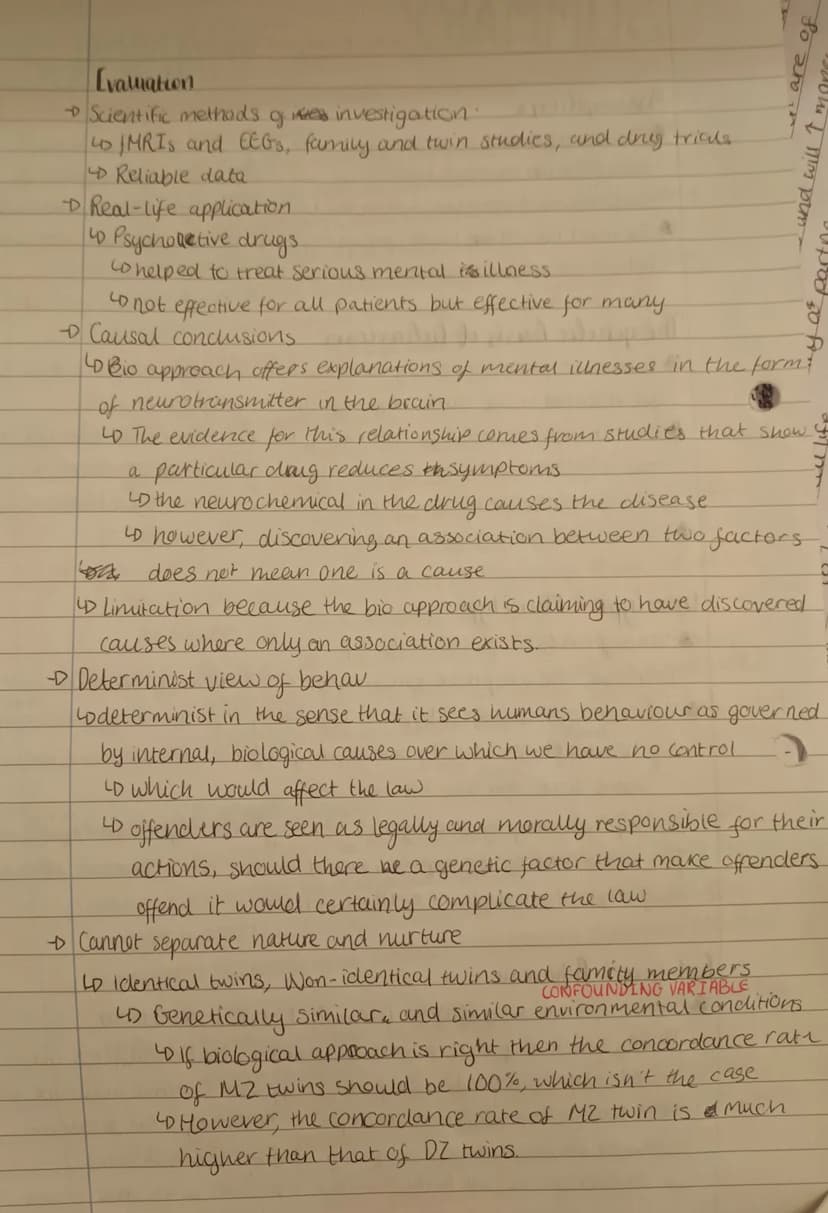 Evaluation
→ Scientific methods of investigation.
↳ fMRIs and EEGs, family and twin studies, and drug trials
↳ Reliable data
→ Real-life application
↳ Psychoactive drugs
↳ helped to treat serious mental illness
↳ not effective for all patients but effective for many
→ Causal conclusions
↳ Bio approach offers explanations of mental illnesses in the form
of neurotransmitter in the brain
↳ The evidence for this relationship comes from studies that show
a particular drug reduces symptoms
↳ the neurochemical in the drug causes the disease
↳ however, discovering an association between two factors
does not mean one is a cause
↳ Limitation because the bio approach is claiming to have discovered
causes where only an association exists.
→ Determinist view of behav
↳ determinist in the sense that it sees humans behaviour as governed
by internal, biological causes over which we have no control
↳ which would affect the law
↳ offenders are seen as legally and morally responsible for their
actions, should there be a genetic factor that make offenders
offend it would certainly complicate the law
→ Cannot separate nature and nurture
↳ Identical twins, Non-identical twins and family members
CONFOUNDING VARIABLE
↳ Genetically similar, and similar environmental conditions
↳ If biological approach is right then the concordance rate
of MZ twins should be 100%, which isn't the case
↳ However, the concordance rate of MZ twin is much
higher than that of DZ twins.
are of
and will ↑ more